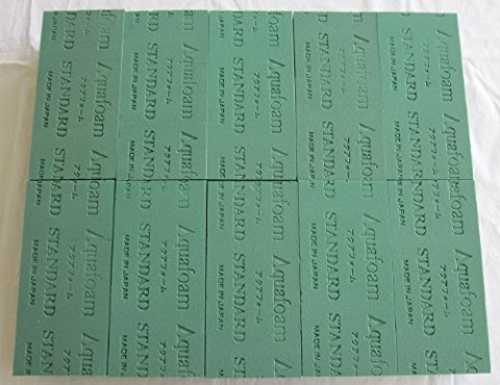 Aquafoam
アクアフォーム
STANDARD
MADE IN JAPAN
Aquafoam
アクアフォーム
STANDARD
MADE IN JAPAN
Aquafoam
アクアフォーム
STANDARD
MADE IN JAPAN
Aquafoam
アクアフォーム
STANDARD
MADE IN JAPAN
Aquafoam
アクアフォーム
STANDARD
MADE IN JAPAN
Aquafoam
アクアフォーム
STANDARD
MADE IN JAPAN
Aquafoam
アクアフォーム
STANDARD
MADE IN JAPAN
Aquafoam
アクアフォーム
STANDARD
MADE IN JAPAN
Aquafoam
アクアフォーム
STANDARD
MADE IN JAPAN
Aquafoam
アクアフォーム
STANDARD
MADE IN JAPAN